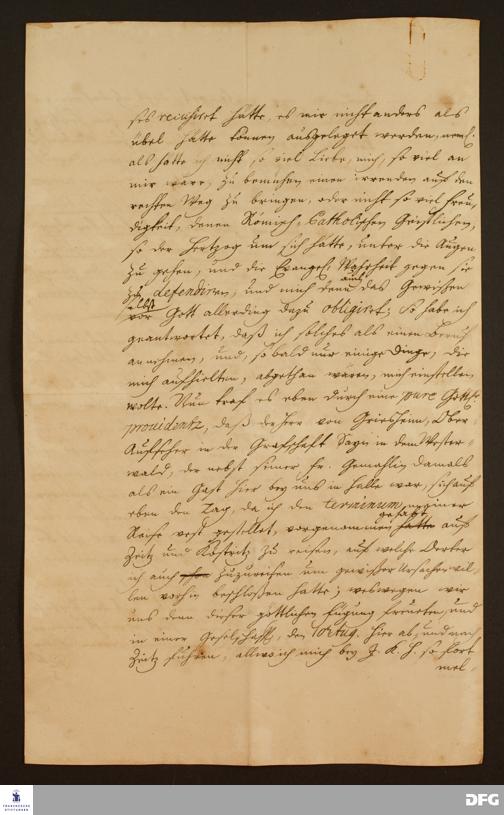 ses recusiret hätte, es mir nicht anders als
übel hätte können ausgeleget werden, neml.
als hätte ich nicht so viel Liebe, mich, so viel an
mir wäre, zu bemühen einen irrenden auf den
rechten Weg zu bringen, oder nicht so viel Freu-
digkeit, denen Römisch-Catholischen Geistlichen,
so der Hertzog um sich hätte, unter die Augen
zu gehen, und die Evangel. Wahrheit gegen sie
zu defendiren, und mich denn auch das Gewissen
selbst vor Gott allerding dazu obligiret; So habe ich
geantwortet, daß ich solches als einen Beruf
annehmen, und, so bald nur einige Dinge, die
mich aufhielten, abgethan wären, mich einstellen
wolte. Nun traf es eben durch eine pure Göttl.
providentz, daß der Herr von Griesheim, Ober-
Aufseher in der Grafschaft Sayn in dem Wester-
wald, der nebst seiner Fr. Gemahlin damals
als ein Gast hier bey uns in Halle war, sich auf
eben den Tag, da ich den terminum meiner
Reise vest gestellet, vorgenommen gehabt auf
Zeitz und Köstritz zu reisen, auf welche Oerter
ich auch zuzureisen um gewisser Ursachen wil-
len vorhin beschlossen hatte; weswegen wir
uns denn dieser göttlichen Fügung freueten, und
in einer Gesellschafft, den hier ab, und nach
Zeitz fuhren, allwo ich mich bey J. K. H. so fort
mel-
FRANCKESCHE
STIFTUNGEN
DFG